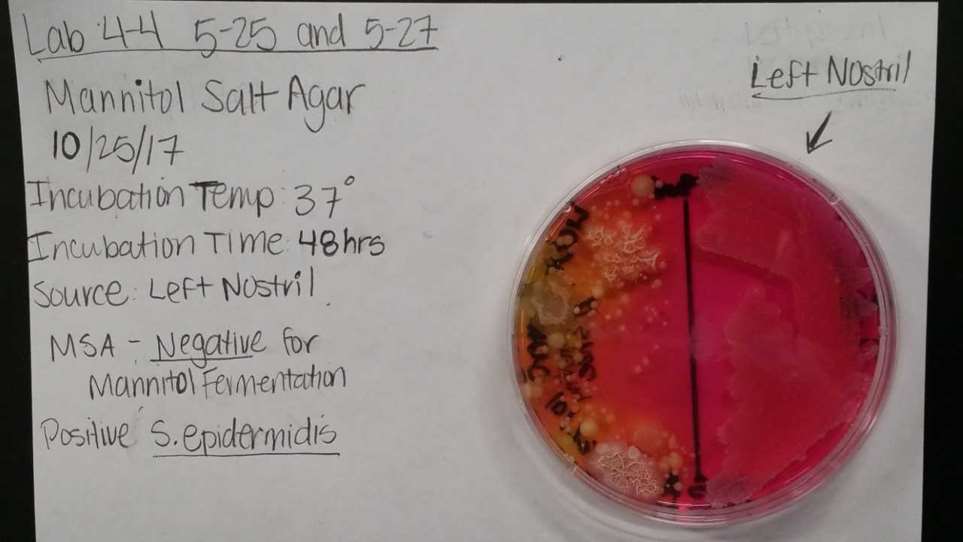 Lab 4-4 5-25 and 5-27
Mannitol Salt Agar
10/25/17
Incubation Temp: 37°
Incubation Time: 48hrs
Source: Left Nostril.
MSA - Negative for
Mannitol Fermentation
Positive S. epidermidis
Left Nostril